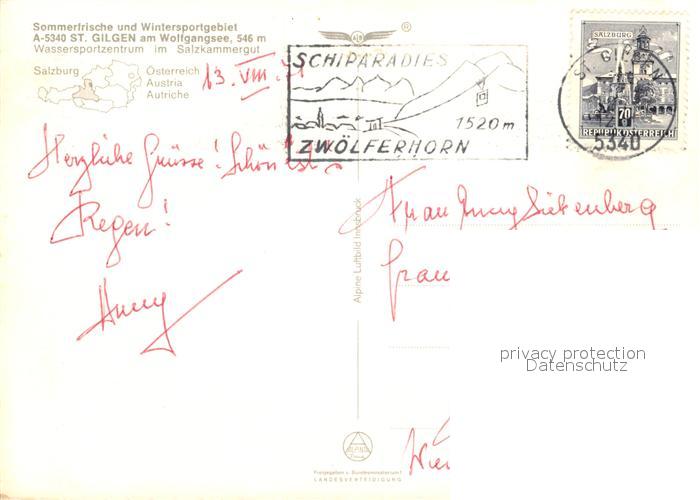 Sommerfrische und Wintersportgebiet
A-5340 ST. GILGEN am Wolfgangsee, 546 m
Wassersportzentrum im Salzkammergut
Salzburg
Österreich
Austria
Autriche
13. VIII.
SCHIPARADIES
1520 m
ZWÖLFERHORN
SALZBURG
70
REPUBLIK ÖSTERREICH
ST. GILGEN
5340
Herzliche Grüsse! Schön ist
Regen!
Alpine Luftbild Innsbruck
Frau
privacy protection
Datenschutz
Wien
ALPINE
Freigegeben v. Bundesministerium f.
LANDESVERTEIDIGUNG